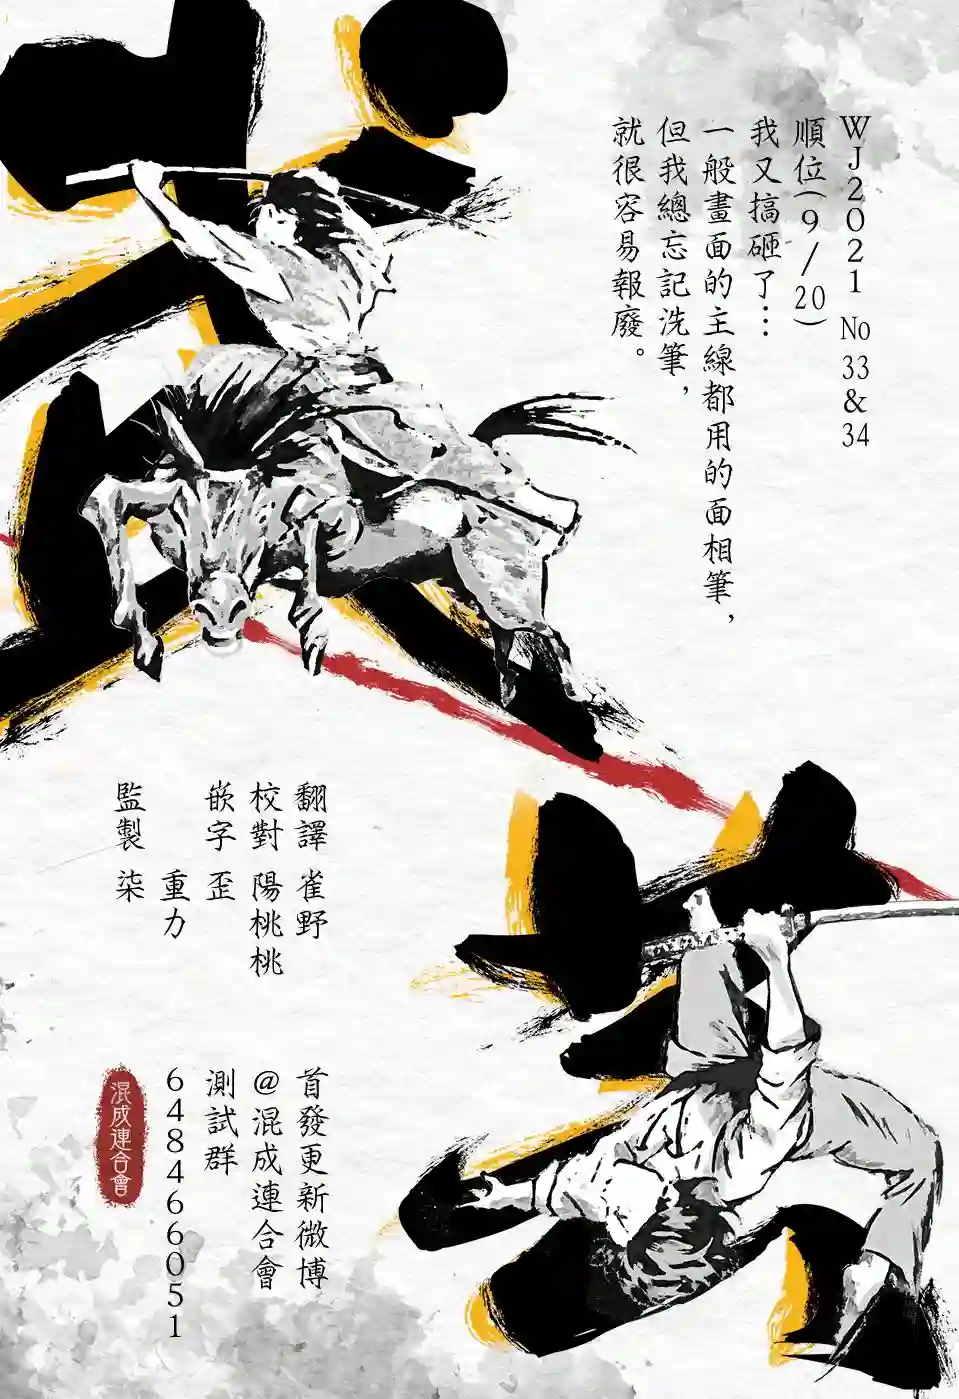 WJ2021 No 33&34
順位(9/20)
我又搞砸了…
一般畫面的主線都用的面相筆，
但我總忘記洗筆，
就很容易報廢。
翻譯 雀野
校對 陽桃桃
嵌字 歪
重力
監製 柒
首發更新微博
@混成連合會
測試群
648466051
混成連合會